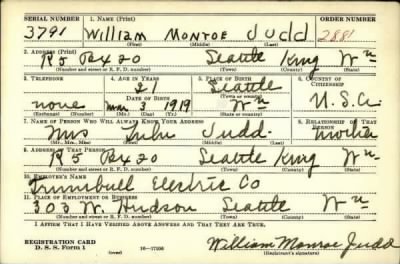 SERIAL NUMBER 1. NAME (Print) ORDER NUMBER
3791 William Monroe Judd 2881
(First) (Middle) (Last)
2. ADDRESS (Print)
R5 Bx 20 Seattle King Wn
(Number and street or R. F. D. number) (Town) (County) (State)
3. TELEPHONE 4. AGE IN YEARS 5. PLACE OF BIRTH 6. COUNTRY OF CITIZENSHIP
21 Seattle
(Town or county)
DATE OF BIRTH
none Mar 3 1919 Wn U.S.A.
(Exchange) (Number) (Mo.) (Day) (Yr.) (State or country)
7. NAME OF PERSON WHO WILL ALWAYS KNOW YOUR ADDRESS 8. RELATIONSHIP OF THAT PERSON
Mrs Lulu Judd mother
(Mr., Mrs., Miss) (First) (Middle) (Last)
9. ADDRESS OF THAT PERSON
R5 Bx 20 Seattle King Wn
(Number and street or R. F. D. number) (Town) (County) (State)
10. EMPLOYER'S NAME
Trumbull Electric Co
11. PLACE OF EMPLOYMENT OR BUSINESS
303 W. Hudson Seattle Wn
(Number and street or R. F. D. number) (Town) (County) (State)
I AFFIRM THAT I HAVE VERIFIED ABOVE ANSWERS AND THAT THEY ARE TRUE.
REGISTRATION CARD
D. S. S. Form 1 16-17105 William Monroe Judd
(Registrant's signature)